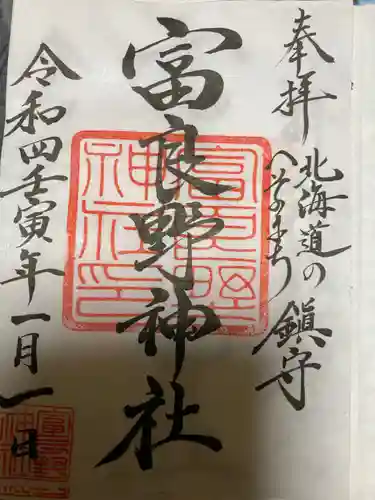 奉拝
北海道の
へそのまち
鎮守
富良野神社
令和四壬寅年一月一日
富良野神社印